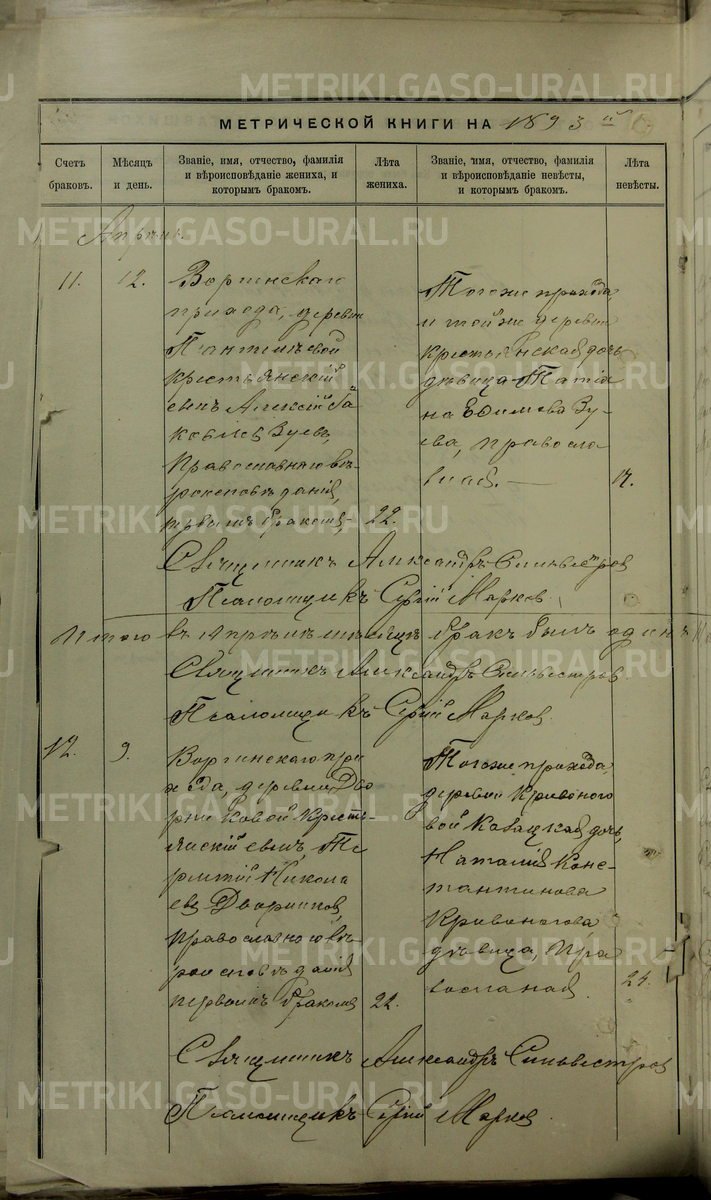 METRIKI.GASO-URAL.RU
МЕТРИЧЕСКОЙ КНИГИ НА 1893 й
Счетъ браковъ.
Мѣсяцъ и день.
Званіе, имя, отчество, фамилія и вѣроисповѣданіе жениха, и которымъ бракомъ.
Лѣта жениха.
Званіе, имя, отчество, фамилія и вѣроисповѣданіе невѣсты, и которымъ бракомъ.
Лѣта невѣсты.
Апрѣль.
11.
12.
прихода, деревни
крестьянскій
сынъ Алексій Іа
ковлевъ Зуевъ,
православнаго вѣ-
роисповѣданія,
первымъ бракомъ,
22.
Тогоже прихода,
и той же деревни
крестьянская дочь
дѣвица Татіа
на Ефимова Зу-
ева, правосла
вная. —
Священникъ Александръ Сильвестровъ
Псаломщикъ Сергій Марков
Итого въ Апрѣлѣ мѣсяцѣ бракъ былъ одинъ
Священникъ Александръ Сильвестров
Псаломщикъ Сергій Марков
12.
9.
хода, деревни Дво
рниковой Крестъ
янскій сынъ Те
рентій Никола
евъ Дворниковъ,
православного вѣ-
роисповѣданія
первымъ бракомъ
22.
Тогоже прихода,
деревни Кривоного
вой Казацкая дочь,
Наталія Конс-
тантинова
Кривоногова
дѣвица, пра
вославная.
24.
Священникъ Александръ Сильвестров
Псаломщикъ Сергій Марков